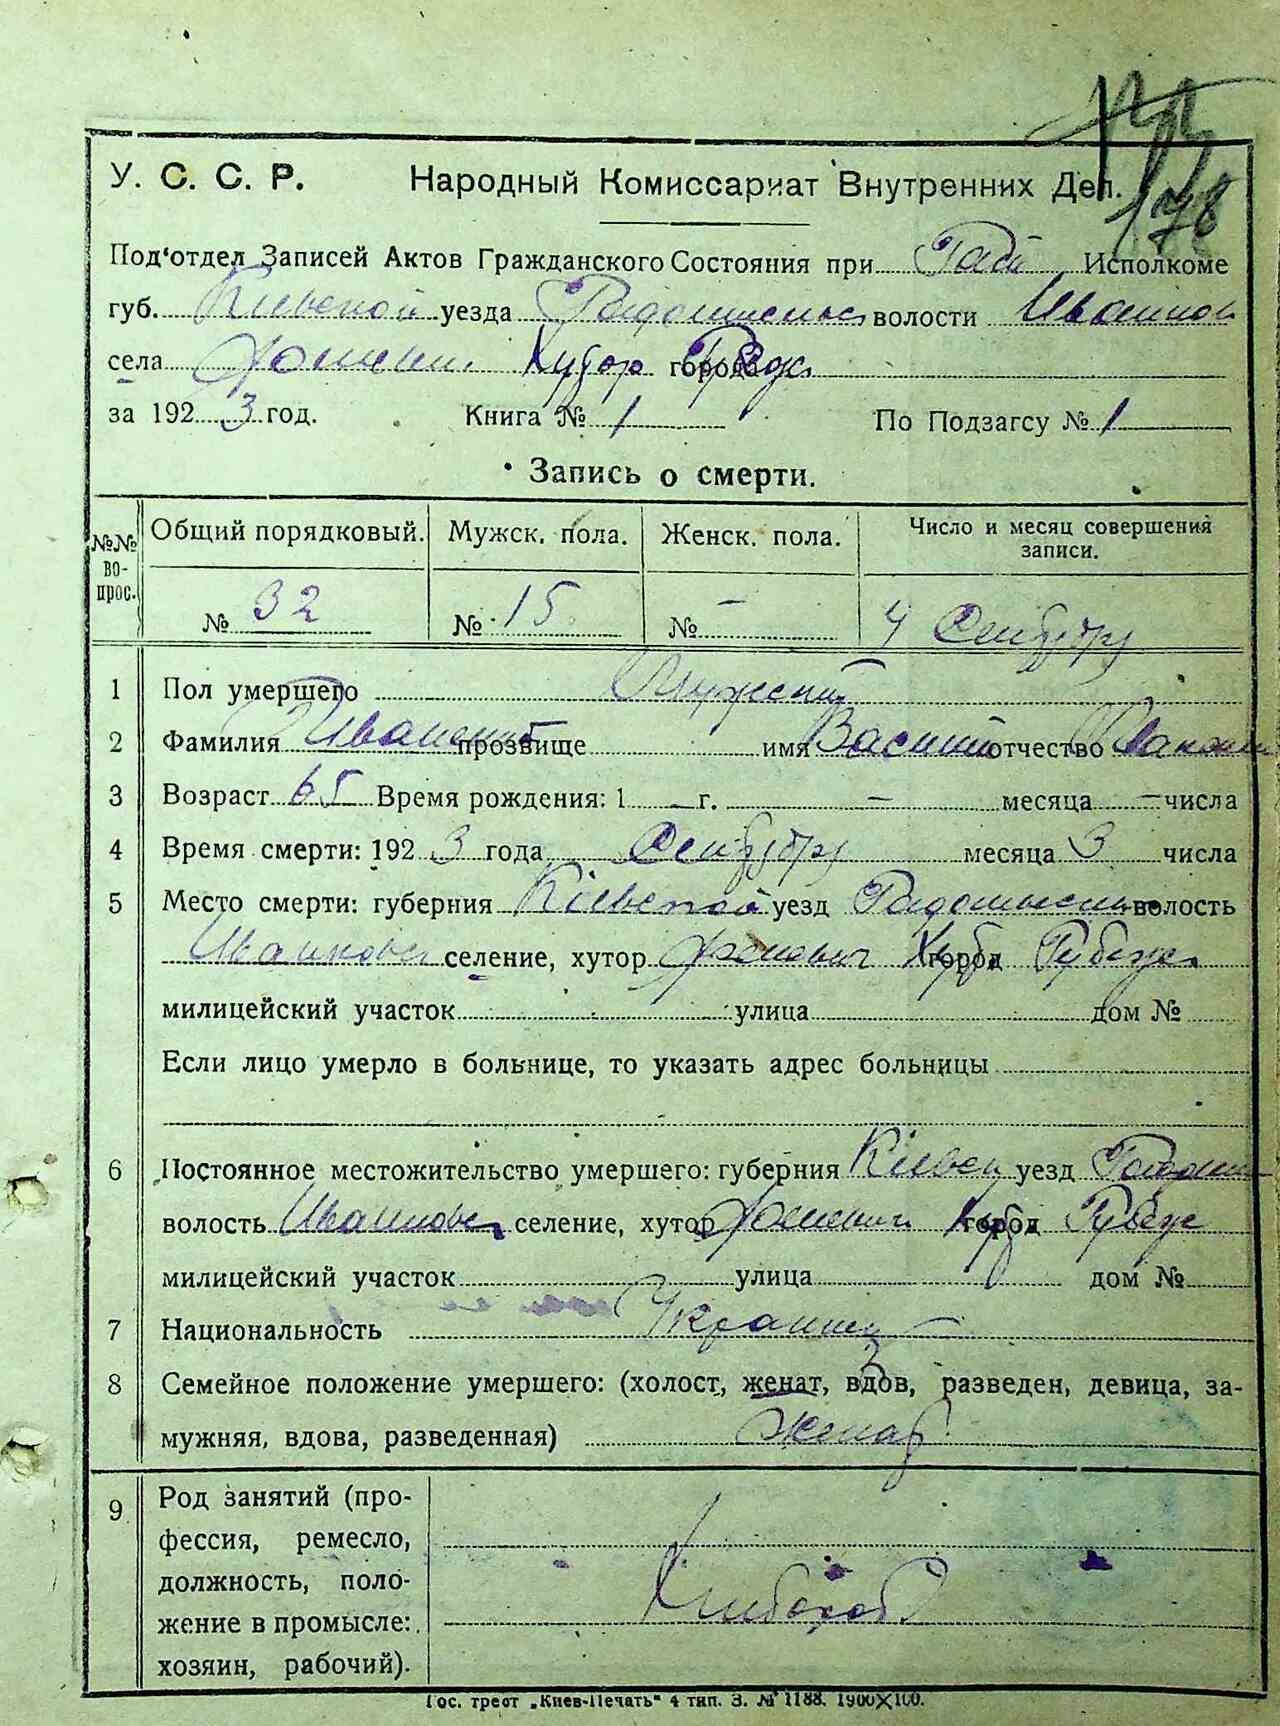 178
У. С. С. Р. Народный Комиссариат Внутренних Дел.
Под'отдел Записей Актов Гражданского Состояния при Исполкоме
губ. Кіевской уезда Радомысльск волости Иванков
села Хутор города
за 1923 год. Книга № 1 По Подзагсу № 1
Запись о смерти.
№№ вопрос. Общий порядковый. Мужск. пола. Женск. пола. Число и месяц совершения записи.
№ 32 № 15 № — 4 Сентября
1 Пол умершего Мужский
2 Фамилия прозвище имя Василий отчество
3 Возраст 65 Время рождения: 1 — г. — месяца — числа
4 Время смерти: 1923 года Сентября месяца 3 числа
5 Место смерти: губерния Кіевской уезд Радомысльск волость
Иванковск селение, хутор город Рубеж
милицейский участок улица дом №
Если лицо умерло в больнице, то указать адрес больницы
6 Постоянное местожительство умершего: губерния Кіевск уезд
волость Иванковск селение, хутор город Рубеж
милицейский участок улица дом №
7 Национальность Украинец
8 Семейное положение умершего: (холост, женат, вдов, разведен, девица, за-
мужняя, вдова, разведенная) Женат
9 Род занятий (про-
фессия, ремесло,
должность, поло-
жение в промысле:
хозяин, рабочий).
Хлибороб
Гос. трест „Киев-Печать“ 4 тип. З. № 1188. 1900X100.